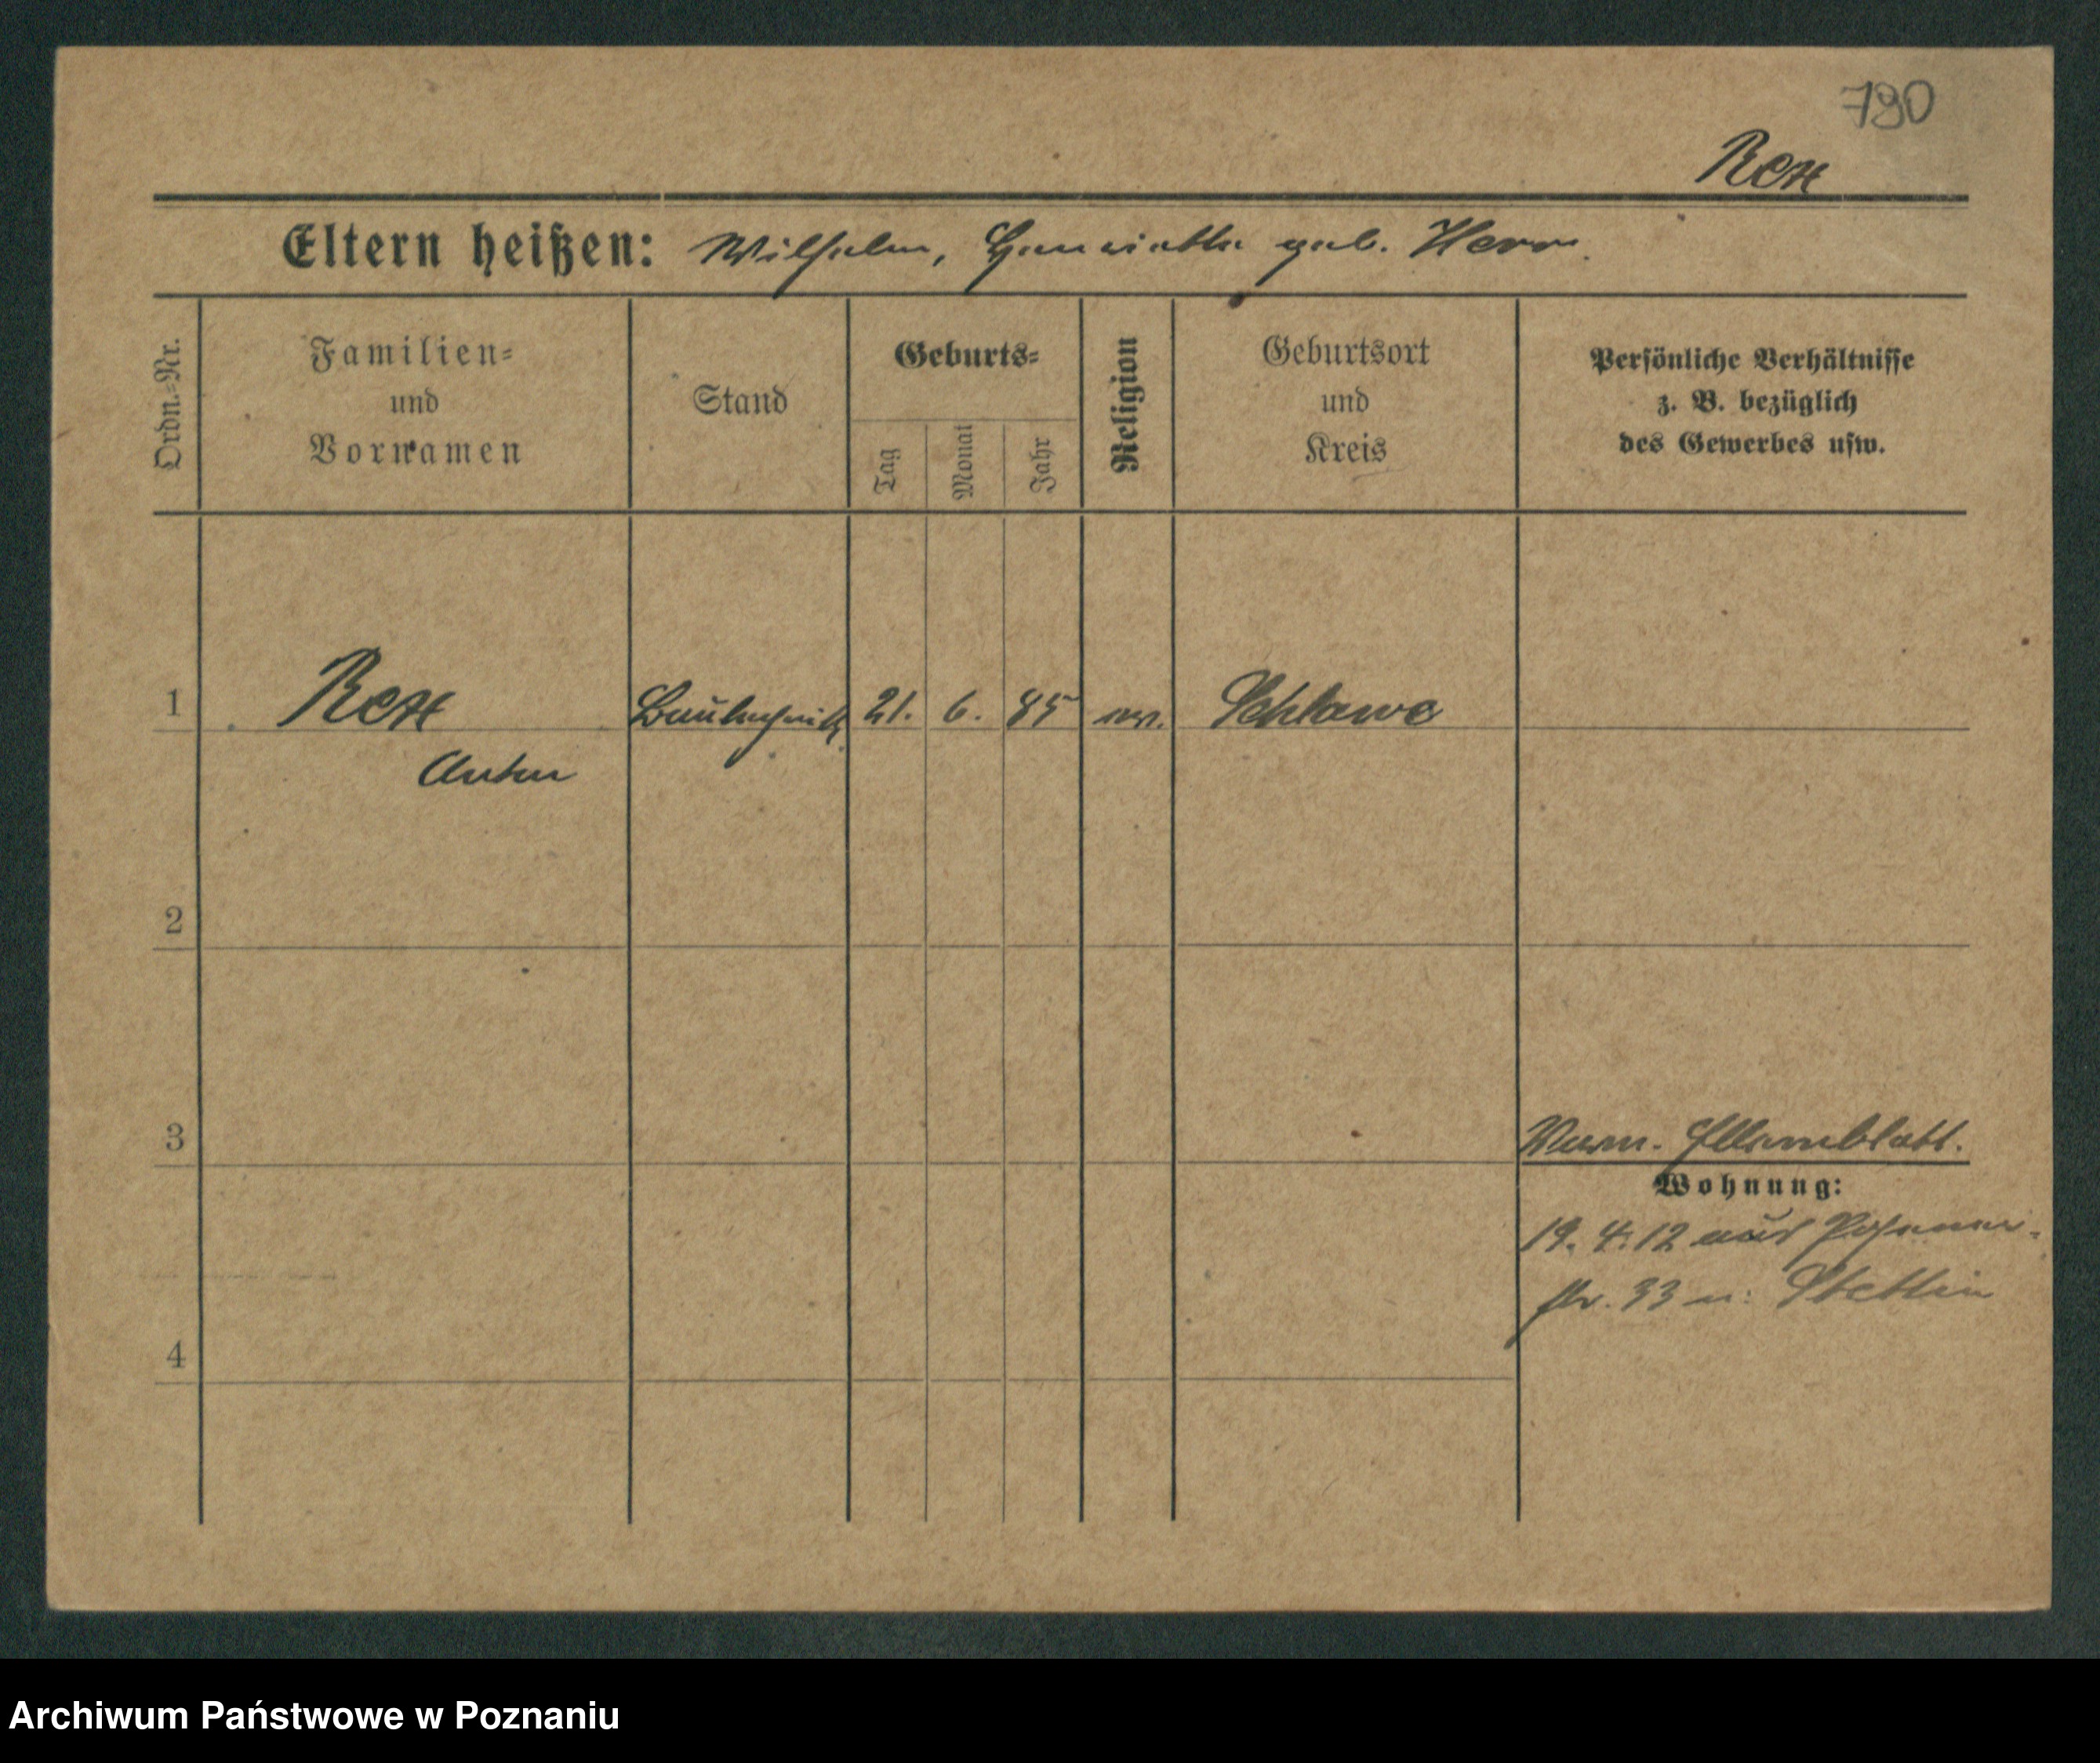 790
Rex
Eltern heißen: Wilhelm, Henriette geb. Herr.
Ordn.-Nr.
Familien- und Vornamen
Stand
Geburts-
Tag
Monat
Jahr
Religion
Geburtsort und Kreis
Persönliche Verhältnisse
z. B. bezüglich
des Gewerbes usw.
1 Rex 21. 6. 85 ev. Schlawe
2
3
Wohnung:
19. 4. 12 aus Posener-
str. 33 n. Stettin
4
Archiwum Państwowe w Poznaniu